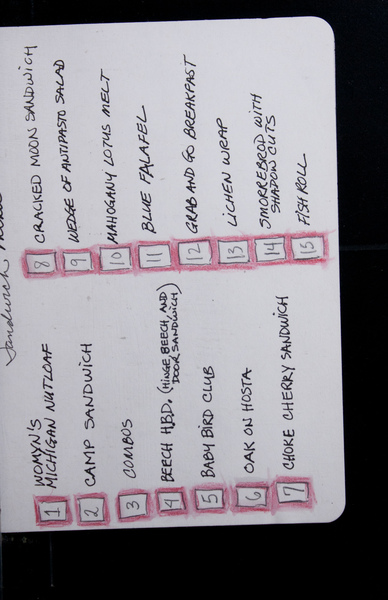 Sandwich
1 WOMYN'S
MICHIGAN NUTLOAF
2 CAMP SANDWICH
3 COMBOS
4 BEECH H.B.D. (HINGE, BEECH, AND
DOOR SANDWICH)
5 BABY BIRD CLUB
6 OAK ON HOSTA
7 CHOKE CHERRY SANDWICH
8 CRACKED MOON SANDWICH
9 WEDGE OF ANTIPASTO SALAD
10 MAHOGANY LOTUS MELT
11 BLUE FALAFEL
12 GRAB AND GO BREAKFAST
13 LICHEN WRAP
14 SMORREBROD WITH
SHADOW CUTS
15 FISH ROLL